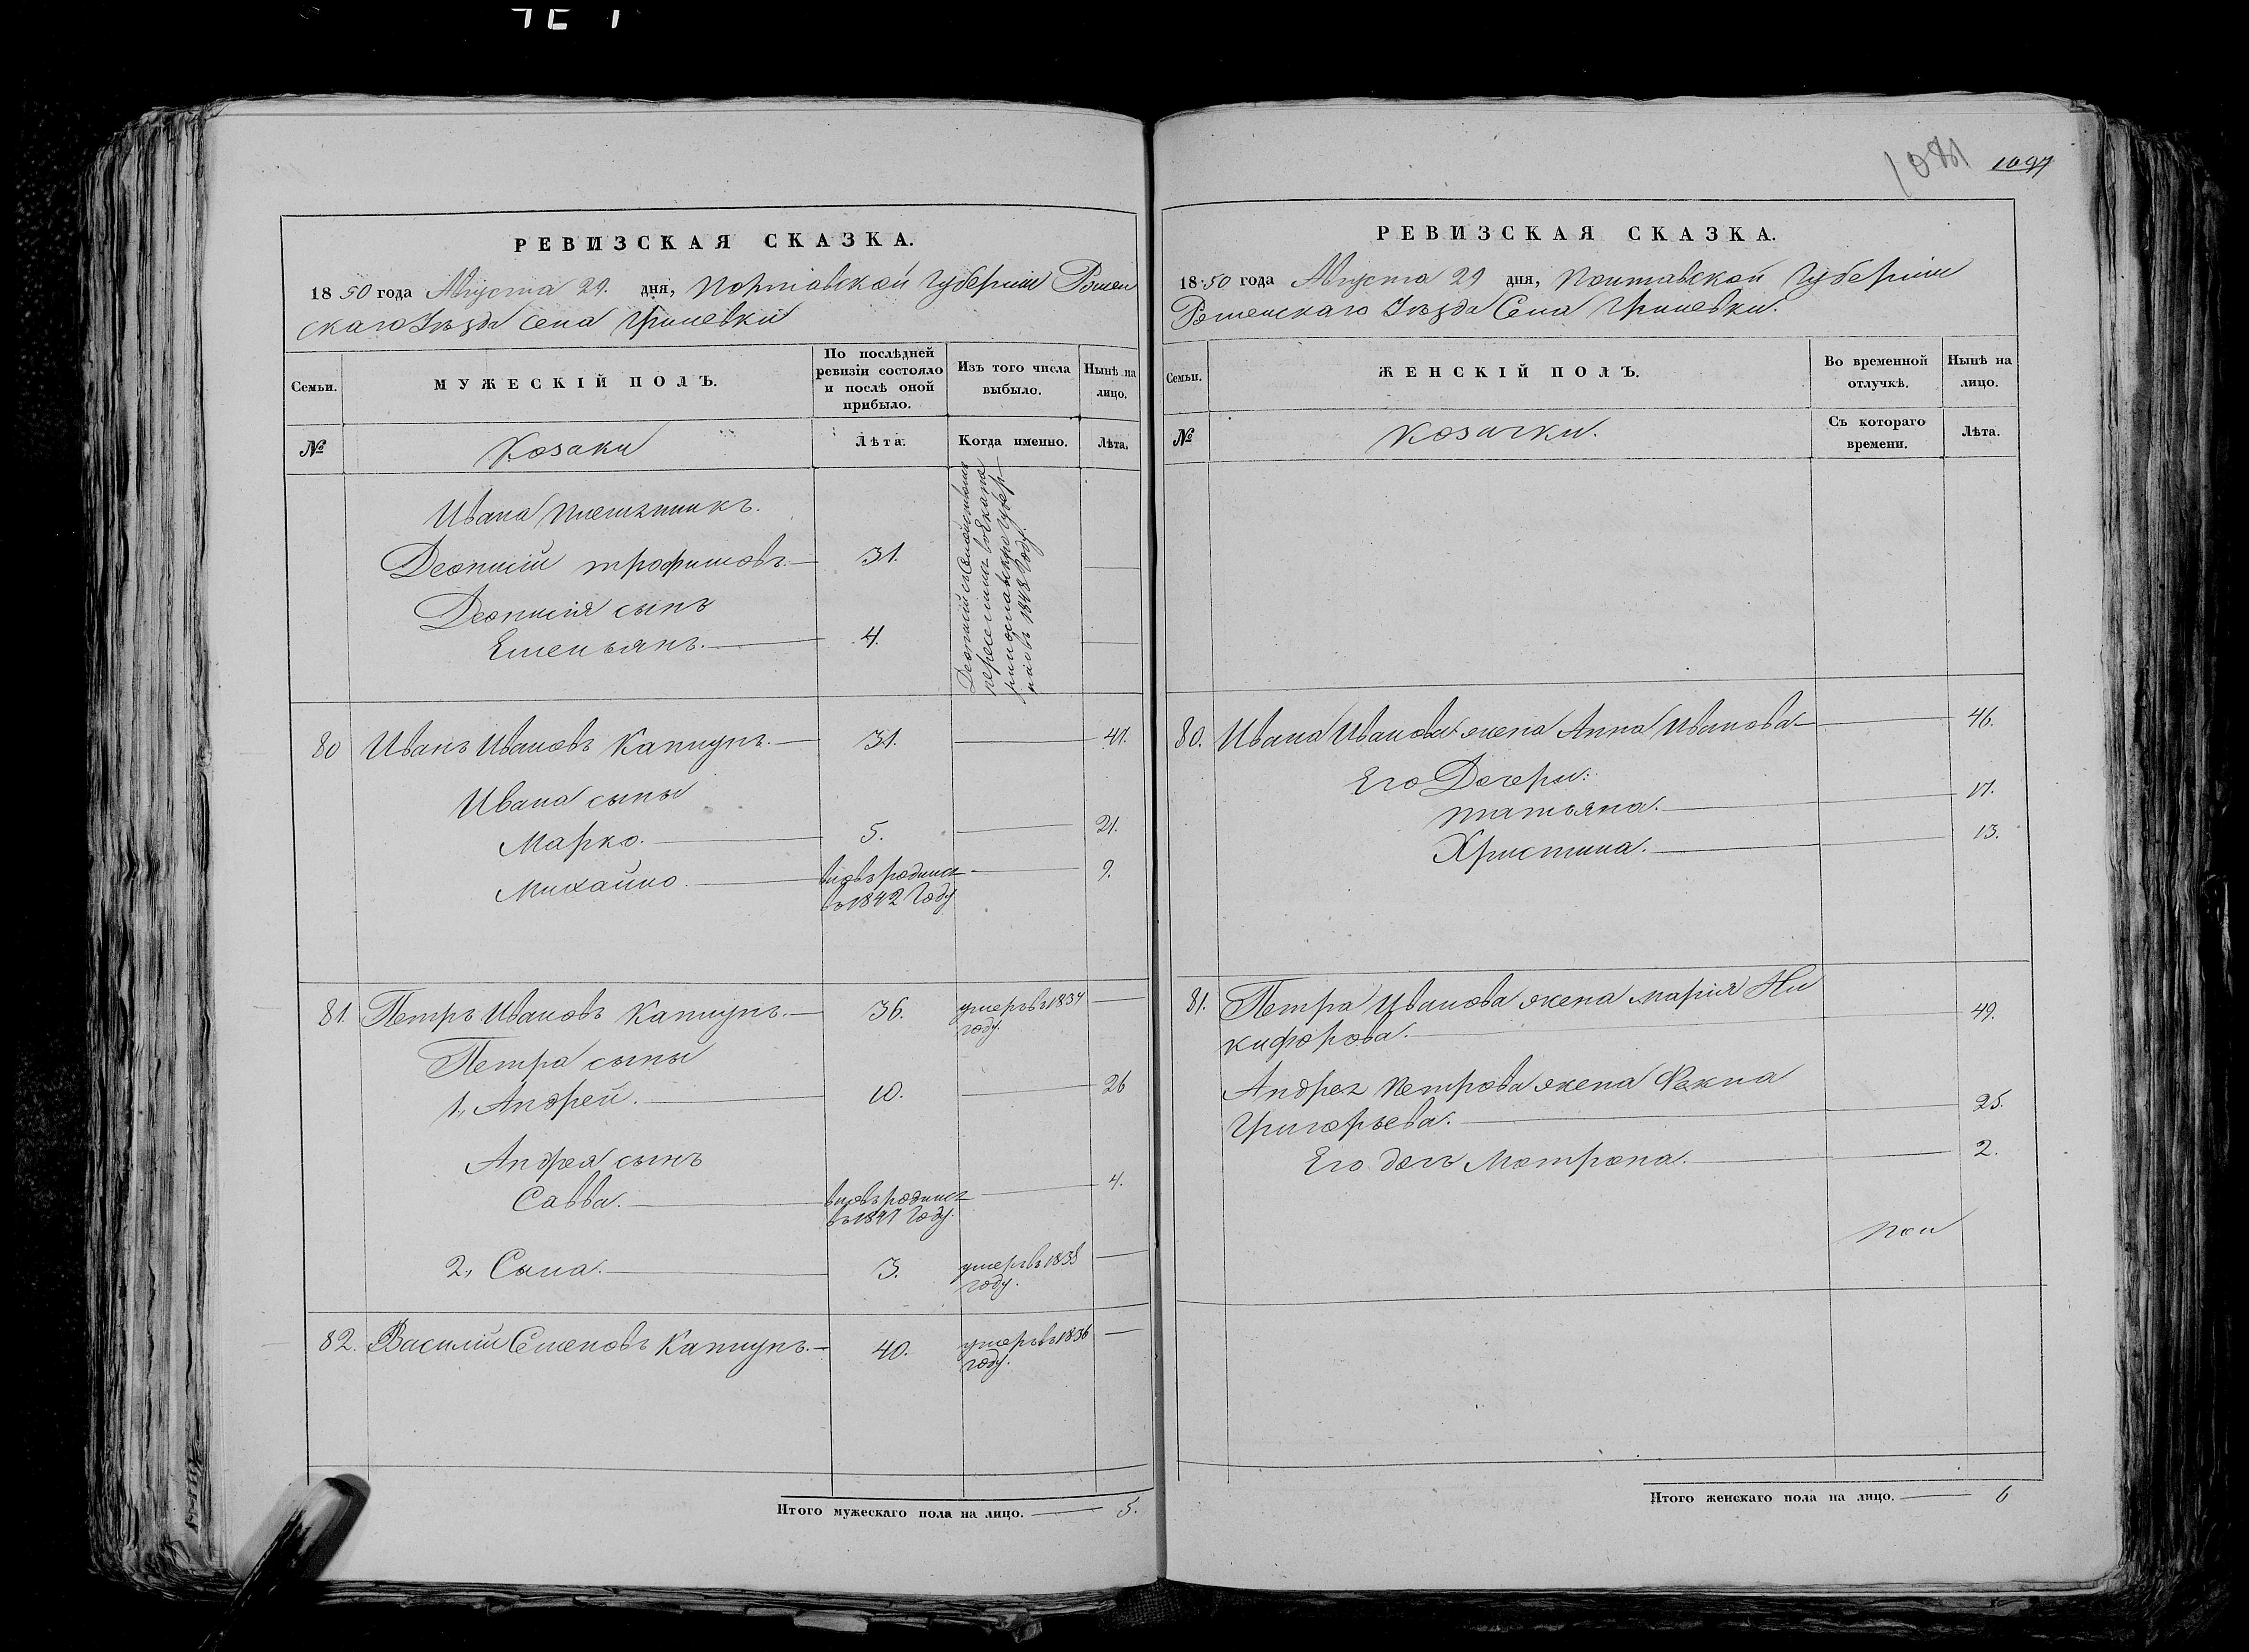 1081 1097
РЕВИЗСКАЯ СКАЗКА.
1850 года Августа 29. дня, Полтавской Губерніи Ромен
скаго Уѣзда Села Гриневки
Семьи. МУЖЕСКІЙ ПОЛЪ. По послѣдней ревизіи состояло и послѣ оной прибыло. Изъ того числа выбыло. Нынѣ на лицо.
№ Козаки Лѣта. Когда именно. Лѣта.
Ивана племянникъ.
Леонтій Трофимовъ. 31.
Леонтія сынъ
Емельянъ. 4.
Леонтій съ Семействомъ
переселился в Екате
ринославскую Губер
нію въ 1848 Году.
80 Иванъ Ивановъ Каплунъ. 31. 47.
Ивана сыны
Марко. 5. 21.
Михайло. вновь родился 9.
въ 1842 Году
81. Петръ Ивановъ Каплунъ. 36. умеръ въ 1834
году.
Петра сыны
1, Андрей. 10. 26
Андрея сынъ
Савва. вновь родился 4.
въ 1847 Году.
2, Сила. 3. умеръ въ 1838
году.
82. Василій Семеновъ Каплунъ. 40. умеръ въ 1836
году.
Итого мужескаго пола на лицо. 5.
РЕВИЗСКАЯ СКАЗКА.
1850 года Августа 29 дня, Полтавской Губерніи
Роменскаго Уѣзда Села Гриневки.
Семьи. ЖЕНСКІЙ ПОЛЪ. Во временной отлучкѣ. Нынѣ на лицо.
№ Козачки. Съ котораго времени. Лѣта.
80. Ивана Иванова жена Анна Иванова 46.
Его Дочери:
Татьяна. 17.
Христина. 13.
81. Петра Иванова жена Марія Ни
кифорова. 49.
Андрея Петрова жена Фекла
Григорьева. 25.
Его дочь Мотрона. 2.
Итого женскаго пола на лицо. 6